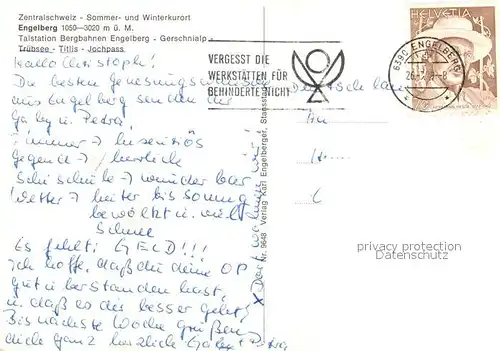 Zentralschweiz - Sommer- und Winterkurort
Engelberg 1050—3020 m ü. M.
Talstation Bergbahnen Engelberg - Gerschnialp -
Trübsee - Titlis - Jochpass
Hallo Christoph!
Die besten Genesungswünsche
aus Engelberg senden dir
Gaby u. Petra!
Zimmer → luxeriös
Gegend → herrlich
Schischule → wunderbar
Wetter → heiter bis sonnig
bewölkt u. viel
Schnee
Es fehlt: GELD!!!
Ich hoffe, daß du deine OP
gut überstanden hast,
u. daß es dir besser geht!
Bis nächste Woche grüßen
dich ganz herzlich Gaby + Petra
x Dort wohnen wir
Nr. 9648 Verlag Karl Engelberger, Stansstad
VERGESST DIE
WERKSTÄTTEN FÜR
BEHINDERTE NICHT
6390 ENGELBERG
HELVETIA
Deutschland
An
privacy protection
watermark